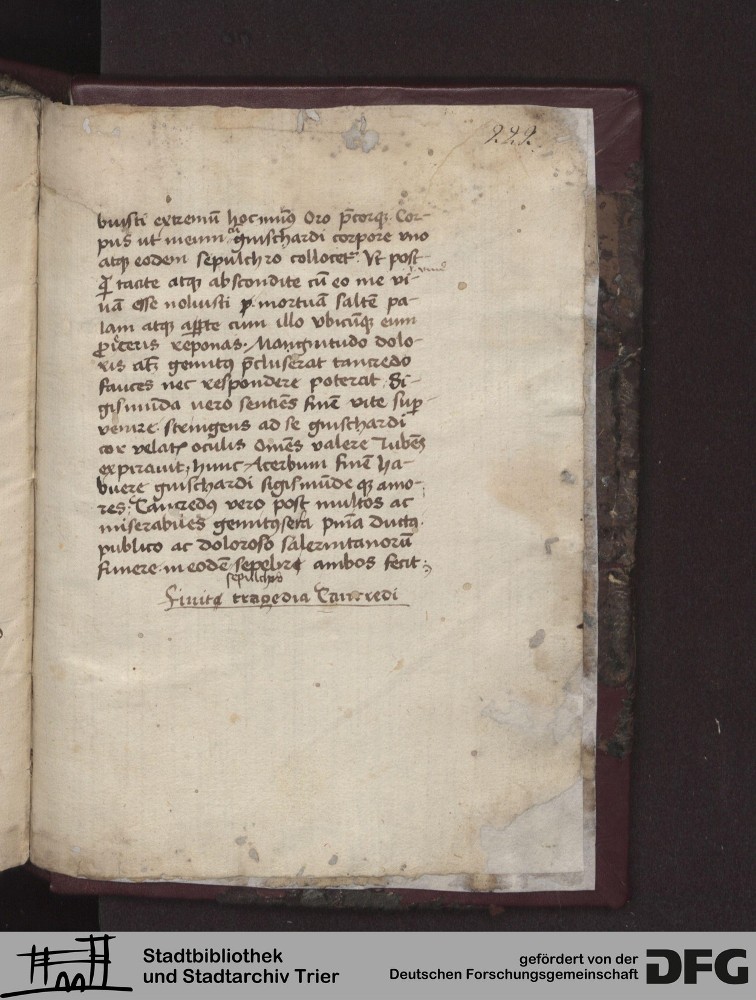 222.
buisti extremū hoc munꝰ Oro p̄corqꝫ Cor-
pus ut meum cū guischardi corpore vno
atqꝫ eodem sepulchro collocetʳ. Vt post-
tacite atqꝫ abscondite cū eo me vi-
uā esse noluisti mortuā saltē pa-
lam atqꝫ aꝑte cum illo vbicūqꝫ eum
ꝓieceris reponas. Mangnitudo dolo-
ris gemitꝰ p̄cluserat tancredo
fauces nec respondere poterat. Si-
gismūda uero sentiēs finē vite suꝑ-
venire. stringens ad se guischardi
cor velatꝭ oculis Omēs valere Iubēs
expirauit, hunc Acerbum finē ha-
buere guischardi sigismūde qꝫ amo-
res. Tancredꝰ vero post multos ac
miserabiles gemitꝰ sera pn̄ia ductꝰ.
publico ac doloroso salernitanorū
funere in eodē sepelire ambos fecit:
sepulchro
Finita tragedia Tancredi
Stadtbibliothek
und Stadtarchiv Trier
gefördert von der
Deutschen Forschungsgemeinschaft
DFG